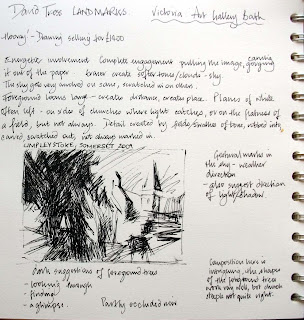 David Tress LANDMARKS Victoria Art Gallery Bath
Hooray! - Drawing selling for £1400
Energetic involvement Complete engagement pulling the image, gouging
carving
it out of the paper eraser create softer tone/clouds - sky.
The sky gets very involved on some, scratched in on others.
Foreground looms large - creates distance, creates place. Planes of white
often left - on side of churches where light catches, or on the flatness of
a field, but not always. Detail created by fields/smudges of tone, rubbed into,
carved, scratched out, not always marked in.
LIMPLEY STOKE, SOMERSET 2009
Gestural marks in
the sky - weather
direction
- also suggest direction
of light/shadow
Dark suggestions of foreground trees
- looking through
- finding
- a glimpse.
Partly occluded view
Composition here is
intriguing, the shapes
of the foreground trees
work very well, but church
steeple not quite right.